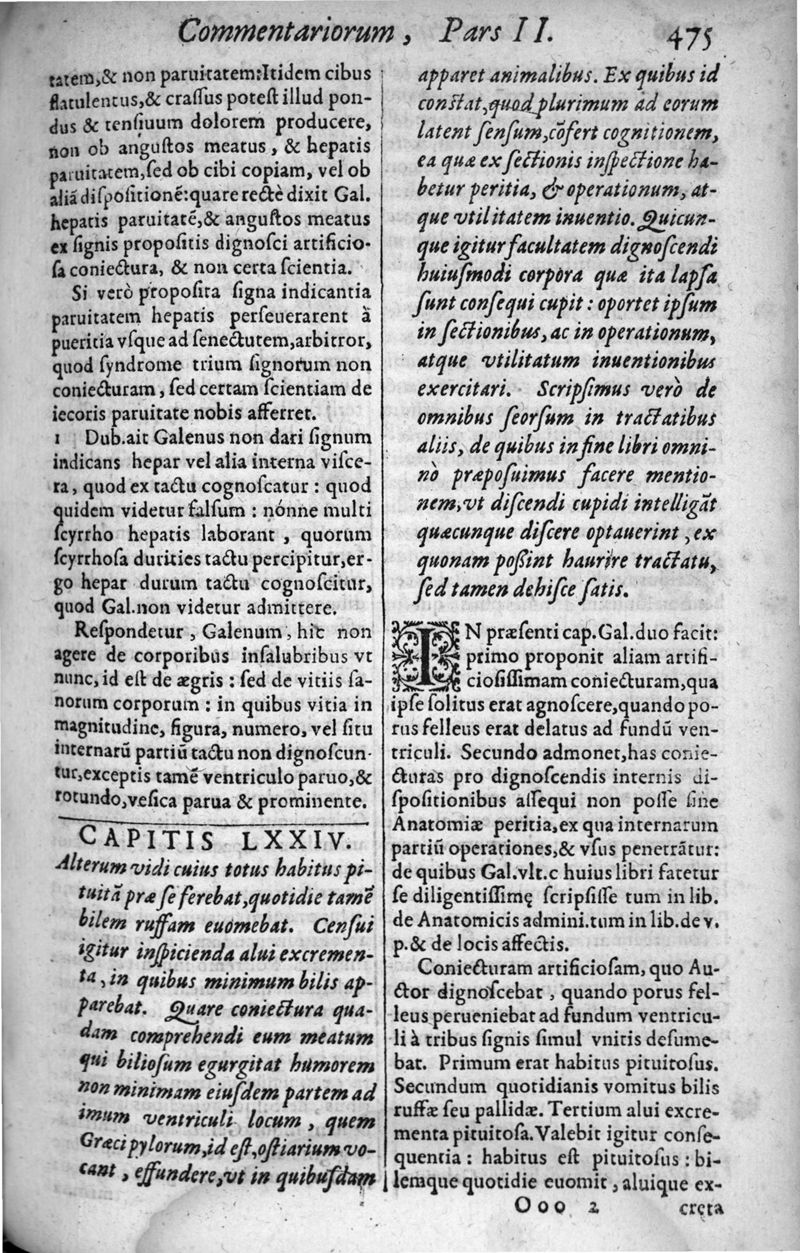 Commentariorum, Pars II. 475
tatem,& non paruitatem:Itidem cibus
flatulentus,& crassus potest illud pon-
dus & tensiuum dolorem producere,
non ob angustos meatus, & hepatis
paruitatem,sed ob cibi copiam, vel ob
aliā dispositionē:quare rectè dixit Gal.
hepatis paruitatē,& angustos meatus
ex signis propositis dignosci artificio-
sa coniectura, & non certa scientia.
Si verò proposita signa indicantia
paruitatem hepatis perseuerarent à
pueritia vsque ad senectutem,arbitror,
quod syndrome trium signorum non
coniecturam, sed certam scientiam de
iecoris paruitate nobis afferret.
1 Dub.ait Galenus non dari signum
indicans hepar vel alia interna visce-
ra, quod ex tactu cognoscatur : quod
quidem videtur falsum : nónne multi
scyrrho hepatis laborant , quorum
scyrrhosa durities tactu percipitur,er-
go hepar durum tactu cognoscitur,
quod Gal.non videtur admittere.
Respondetur , Galenum, hîc non
agere de corporibus insalubribus vt
nunc, id est de ægris : sed de vitiis sa-
norum corporum : in quibus vitia in
magnitudine, figura, numero, vel situ
internarū partiū tactu non dignoscun-
tur,exceptis tamē ventriculo paruo,&
rotundo,vesica parua & prominente.
CAPITIS LXXIV.
Alterum vidi cuius totus habitus pi-
tuitā præ se ferebat,quotidie tamē
bilem ruffam euomebat. Censui
igitur inspicienda alui excremen-
ta, in quibus minimum bilis ap-
parebat. Quare coniectura qua-
dam comprehendi eum meatum
qui biliosum egurgitat humorem
non minimam eiusdem partem ad
imum ventriculi locum, quem
Græci pylorum,id est,ostiarium vo-
cant, effundere,vt in quibusdam
apparet animalibus. Ex quibus id
constat,quod plurimum ad eorum
latent sensum,cōfert cognitionem,
ea quæ ex sectionis inspectione ha-
betur peritia, & operationum, at-
que vtilitatem inuentio. Quicun-
que igitur facultatem dignoscendi
huiusmodi corpora quæ ita lapsa
sunt consequi cupit : oportet ipsum
in sectionibus, ac in operationum,
atque vtilitatum inuentionibus
exercitari. Scripsimus verò de
omnibus seorsum in tractatibus
aliis, de quibus in fine libri omni-
nò præposuimus facere mentio-
nem,vt discendi cupidi intelligāt
quæcunque discere optauerint, ex
quonam possint haurire tractatu,
sed tamen dehisce satis.
IN præsenti cap.Gal.duo facit:
primo proponit aliam artifi-
ciosissimam coniecturam,qua
ipse solitus erat agnoscere,quando po-
rus felleus erat delatus ad fundū ven-
triculi. Secundo admonet,has conie-
cturas pro dignoscendis internis di-
spositionibus assequi non posse sine
Anatomiæ peritia,ex qua internarum
partiū operationes,& vsus penetrātur:
de quibus Gal.vlt.c huius libri fatetur
se diligentissimę scripsisse tum in lib.
de Anatomicis admini.tum in lib.de v.
p.& de locis affectis.
Coniecturam artificiosam, quo Au-
ctor dignoscebat , quando porus fel-
leus perueniebat ad fundum ventricu-
li à tribus signis simul vnitis desume-
bat. Primum erat habitus pituitosus.
Secundum quotidianis vomitus bilis
ruffæ seu pallidæ. Tertium alui excre-
menta pituitosa. Valebit igitur conse-
quentia : habitus est pituitosus : bi-
lemque quotidie euomit, aluique ex-
Ooo 2 creta